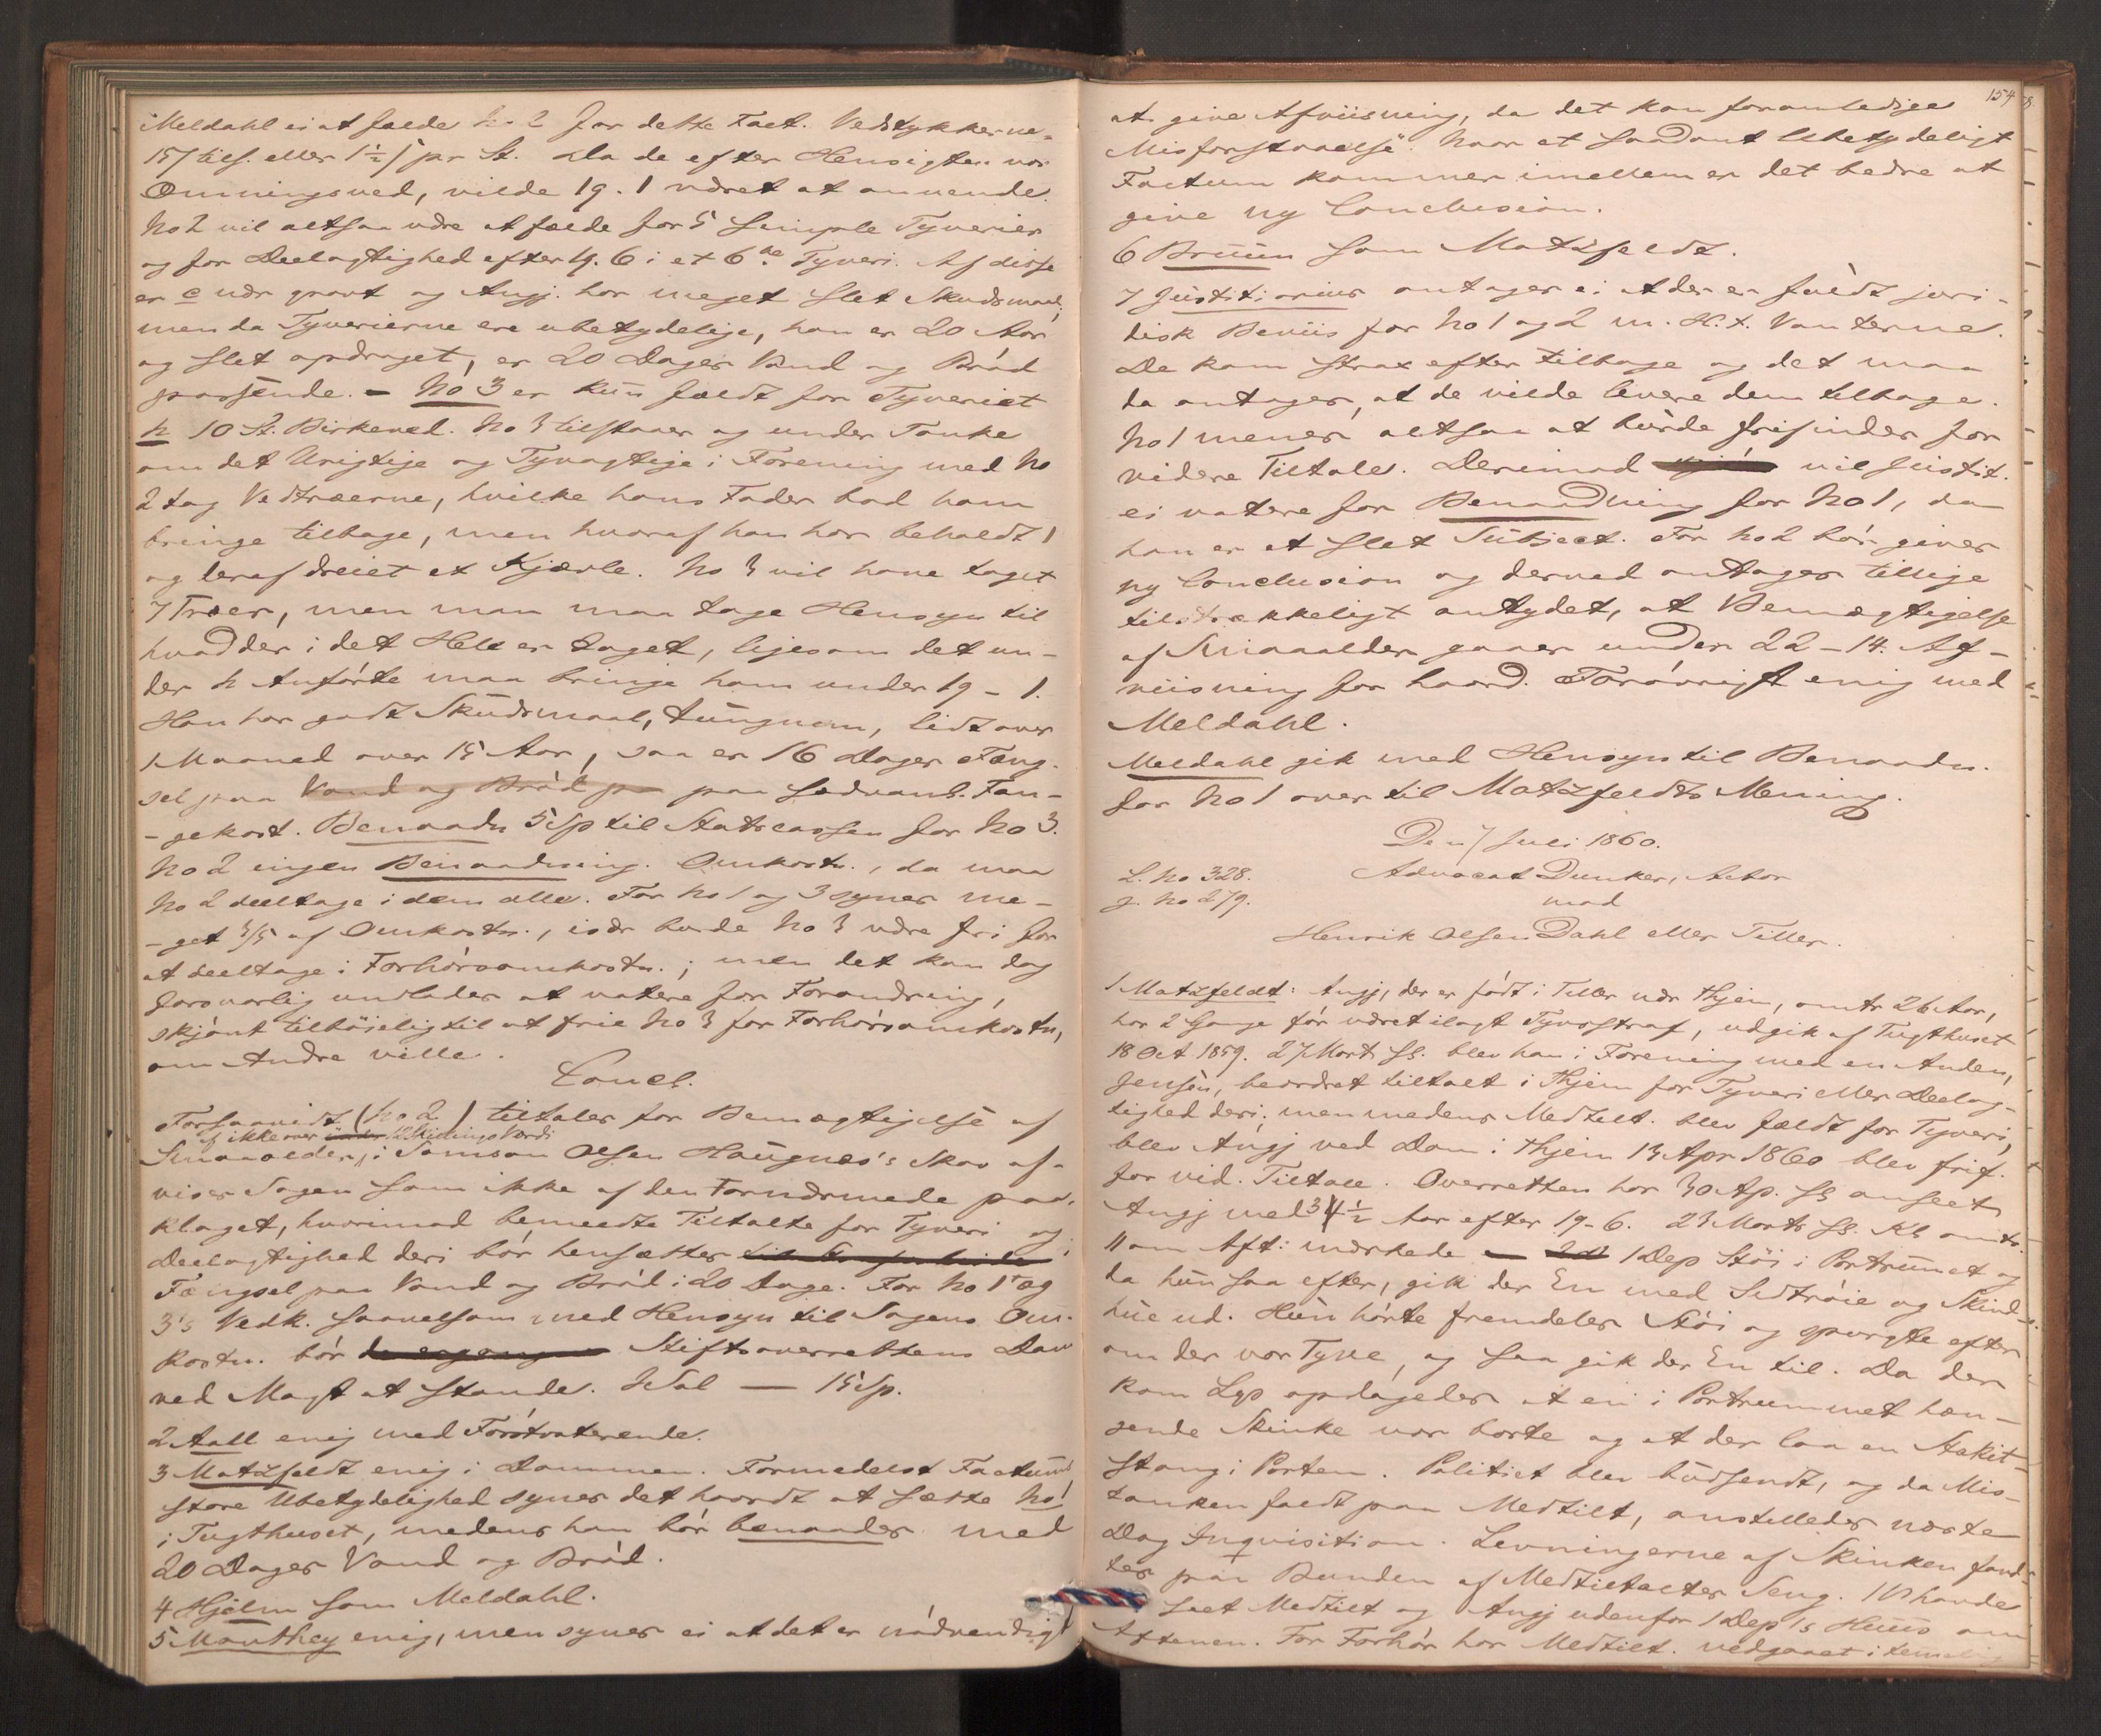 Meldahl ei at fælde No 2 for dette Fact. Vedstykkerne
15 / tils. eller 1½ / pr St. Da de efter Hensigten var
Ovnningsved, vilde 19. 1 været at anvende.
No 2 vil altsaa være at fælde for 5 Simple Tyverier
og for Deelagtighed efter 19. 6 i et 6te Tyveri. Af disse
er e nær grovt og Angj. har meget slet Skudsmaal,
men da Tyverierne ere ubetydelige, han er 20 Aar
og slet opdraget, er 20 Dages Vand og Bród
passende. - No 3 er kun fældt for Tyveriet
h 10 St. Birkeved. No 3 tilstaaer og under Tanke
om det Urigtige og Tyvagtige i Forening med No
2 tog Vedtræerne, hvilke hans Fader bad ham
bringe tilbage, men hvoraf han har beholdt 1
og deraf dreiet et Kjævle. No 3 vil have taget
7 Træer, men man maa tage Hensyn til
hvad der i det Hele er taget, ligesom det un-
der h Anfórte maa bringe ham under 19 - 1.
Han har godt Skudsmaal, tungnem, lidt over
1 Maaned over 15 Aar, saa er 16 Dages Fæng-
sel paa Vand og Bród pa paa sædvanl. Fan-
- gekost. Benaadn 5 Sp til Statscassen for No 3.
No 2 ingen Benaadning. Omkostn., da maa
No 2 deeltage i dem alle. For No 1 og 3 synes me-
- get 3/5 af Omkostn., især burde No 3 være fri for
at deeltage i Forhórsomkostn.; men det kan dog
forsvarlig undlades at votere for Forandring,
skjónt tilbóielig til at frie No 3 for Forhórsomkostn,
om Andre ville.
Concl.
Forsaavidt (No 2) tiltales for Bemægtigelse af
af ikke over under 12 Skillings Værdi
Smaaolder, i Samson Olsen Haugnæs's Skov af-
vises Sagen som ikke af den Fornærmede paa-
klaget, hvorimod bemeldte Tiltalte for Tyveri og
Deelagtighed deri bór hensættes i
Fængsel paa Vand og Bród i 20 Dage. For No 1 og
3's Vedk. saavelsom med Hensyn til Sagens Om-
kostn. bór Stiftsoverrettens Dom
ved Magt at stande. Sal — 15 Sp.
2 Aall enig med Fórstvoterende.
3 Motzfeldt enig i Dommen. Formedelst Factums
store Ubetydelighed synes det haardt at sætte No 1
i Tugthuset, medens han bór benaades med
20 Dages Vand og Bród.
4 Hjelm som Meldahl.
5 Manthey enig, men synes ei at det er nódvendigt
154
at give Afviisning, da det kan foranledige
Misforstaaelse. Naar et saadant Ubetydeligt
Factum kommer imellem er det bedre at
give ny Conclusion.
6 Bruun som Motzfeldt.
7 Justitiarius antager ei at der er fuldt juri-
disk Beviis for No 1 og 2 m. H. t. Vanterne.
De kom strax efter tilbage og det maa
da antages, at de vilde levere dem tilbage.
No 1 menes altsaa at burde frifindes for
videre Tiltale. Derimod vil Justit.
ei votere for Benaadning for No 1, da
han er et slet Subject. For No 2 bór gives
ny Conclusion og derved antages tillige
tilstrækkeligt antydet, at Bemægtigelse
af Smaaolder gaaer under 22 - 14. Af-
viisning for haard. Forövrigt enig med
Meldahl.
Meldahl gik med Hensyn til Benaadn.
for No 1 over til Motzfeldts Mening.
Den 7 Juli 1860.
L. No 328. Advocat Dunker, Actor
J. No 279. mod
Henrik Olsen Dahl eller Tiller.
1 Motzfeldt: Angj, der er fódt i Tiller nær Thjem, omtr 26 Aar,
har 2 Gange fór været ilagt Tyvsstraf, udgik af Tugthuset
18 Oct 1859. 27 Marts ds. blev han i Forening med en Anden,
Jensen, beordret tiltalt i Thjem for Tyveri eller Deelag-
tighed deri; men medens Medtilt. blev fældt for Tyveri,
blev Angj ved Dom i Thjem 13 Apr 1860 blev frif.
for vid. Tiltale. Overretten har 30 Ap. ds anseet
Angj med 3 4½ Aar efter 19-6. 23 Marts ds. Kl omtr.
11 om Aft: mærkede 1 Dep Stói i Portrummet og
da hun saa efter, gik der En med Sidtróie og Skind-
hue ud. Hun hórte fremdeles Stói og spurgte efter
om der var Tyve, og saa gik der En til. Da der
kom Lys opdagedes at en i Portrummet hæn-
gende Skinke var borte og at der laa en Stakit-
stang i Porten. Politiet blev budsendt, og da Mis-
tanken faldt paa Medtilt, anstilledes næste
Dag Inquisition. Levningerne af Skinken fand-
tes paa Bunden af Medtiltaltes Seng. 1 V havde
seet Medtilt og Angj udenfor 1 Dep's Huus om
Aftenen. For Forhór har Medtilt. vedgaaet i temmelig